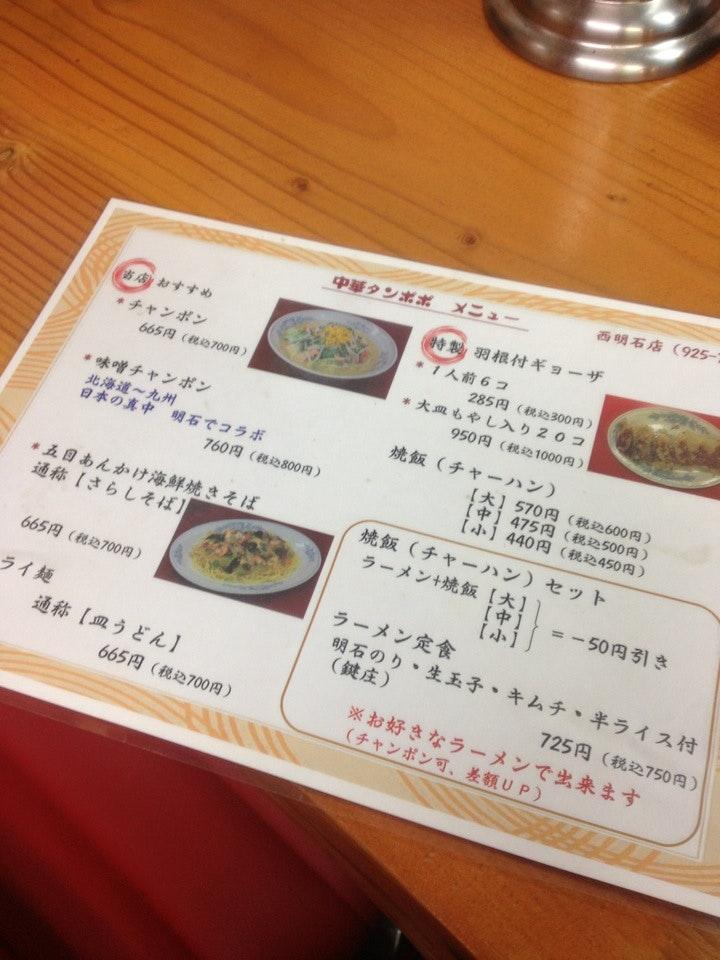 中華タンポポ メニュー
西明石店(925-
当店おすすめ
*チャンポン
665円(税込700円)
*味噌チャンポン
北海道~九州
日本の真中 明石でコラボ
760円(税込800円)
*五目あんかけ海鮮焼きそば
通称【さらしそば】
665円(税込700円)
ライ麺
通称【皿うどん】
665円(税込700円)
特製 羽根付ギョーザ
*1人前6コ
285円(税込300円)
*大皿もやし入り20コ
950円(税込1000円)
焼飯(チャーハン)
【大】570円(税込600円)
【中】475円(税込500円)
【小】440円(税込450円)
焼飯(チャーハン)セット
ラーメン+焼飯【大】
【中】
【小】
=-50円引き
ラーメン定食
明石のり・生玉子・キムチ・半ライス付
(鍵庄)
725円(税込750円)
※お好きなラーメンで出来ます
(チャンポン可、差額UP)